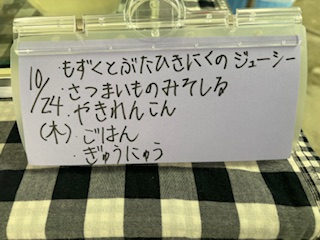 10/24(木)
・もずくとぶたひきにくのジューシー
・さつまいものみそしる
・やきれんこん
・ごはん
・ぎゅうにゅう